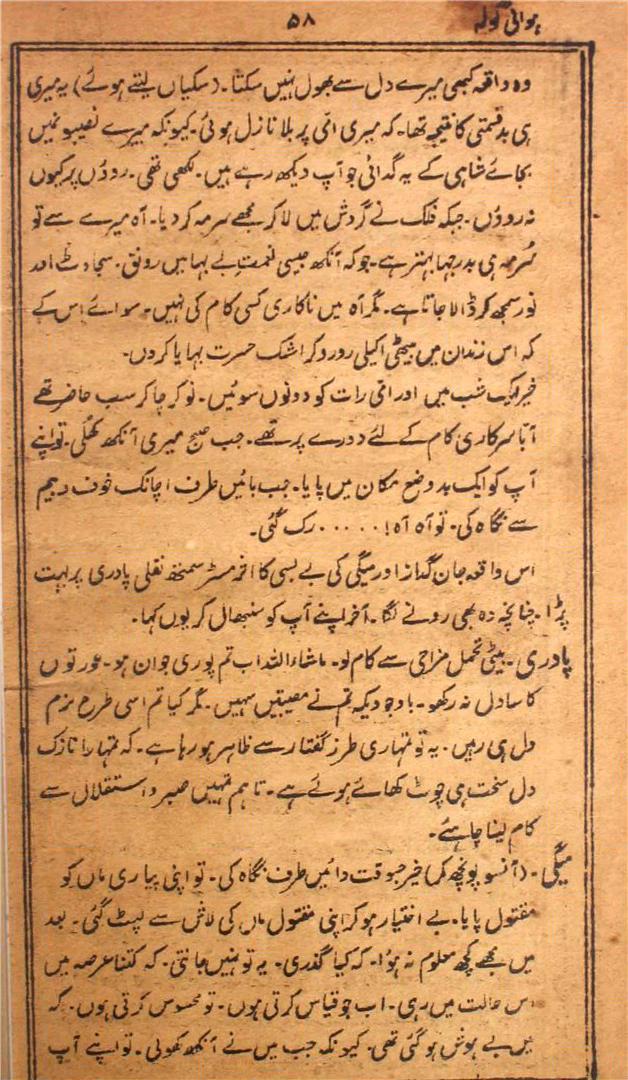 ہوائی گولہ ۵۸
وہ واقعہ کبھی میرے دل سے بھول نہیں سکتا۔ (سسکیاں لیتے ہوئے) یہ میری
ہی بدقسمتی کا نتیجہ تھا۔ کہ میری امی پر بلا نازل ہوئی۔ کیونکہ میرے نصیبو نمیں
بجائے شاہی کے یہ گدائی جو آپ دیکھ رہے ہیں۔ لکھی تھی۔ روؤں پر کیوں
نہ روؤں۔ جبکہ فلک نے گردش میں لا کر مجھے سرمہ کر دیا۔ آہ میرے سے تو
سُرمہ ہی بدرجہا بہتر ہے۔ جو کہ آنکھ جیسی نعمت بے بہا میں رونق۔ سجاوٹ اور
نور سمجھ کر ڈالا جاتا ہے۔ مگر آہ میں ناکاری کسی کام کی نہیں۔ سوائے اس کے
کہ اس زندان میں بیٹھی اکیلی رو رو کر اشک حسرت بہایا کروں۔
خیر ایک شب میں اور امی رات کو دونوں سوئیں۔ نوکر چاکر سب حاضر تھے
ابا سرکاری کام کے لئے دورے پر تھے۔ جب صبح میری آنکھ کھُلی۔ تو اپنے
آپ کو ایک بدوضع مکان میں پایا۔ جب بائیں طرف اچانک خوف و بیم
سے نگاہ کی۔ تو آہ آہ! ..... رک گئی۔
اس واقعہ جان گداز اور میگی کی بے بسی کا اثر مسٹر سمتھ نقلی پادری پر بہت
پڑا۔ چنانچہ وہ بھی رونے لگا۔ آخر اپنے آپ کو سنبھال کر یوں کہا۔
پادری۔ بیٹی تحمل مزاجی سے کام لو۔ ماشاء اللہ اب تم پوری جوان ہو۔ عورتوں
کا سا دل نہ رکھو۔ باوجودیکہ تم نے مصیبتیں سہیں۔ مگر کیا تم اسی طرح نرم
دل ہی رہیں۔ یہ تو تمہاری طرز گفتار سے ظاہر ہو رہا ہے۔ کہ تمہارا نازک
دل سخت ہی چوٹ کھائے ہوئے ہے۔ تاہم تمہیں صبر و استقلال سے
کام لینا چاہئے۔
میگی۔ (آنسو پونچھ کر) خیر جسوقت دائیں طرف نگاہ کی۔ تو اپنی پیاری ماں کو
مقتول پایا۔ بے اختیار ہو کر اپنی مقتول ماں کی لاش سے لپٹ گئی۔ بعد
میں مجھے کچھ معلوم نہ ہوا۔ کہ کیا گذری۔ یہ تو نہیں جانتی۔ کہ کتنا عرصہ میں
اس حالت میں رہی۔ اب جو قیاس کرتی ہوں۔ تو محسوس کرتی ہوں۔ کہ
میں بے ہوش ہو گئی تھی۔ کیونکہ جب میں نے آنکھ کھولی۔ تو اپنے آپ